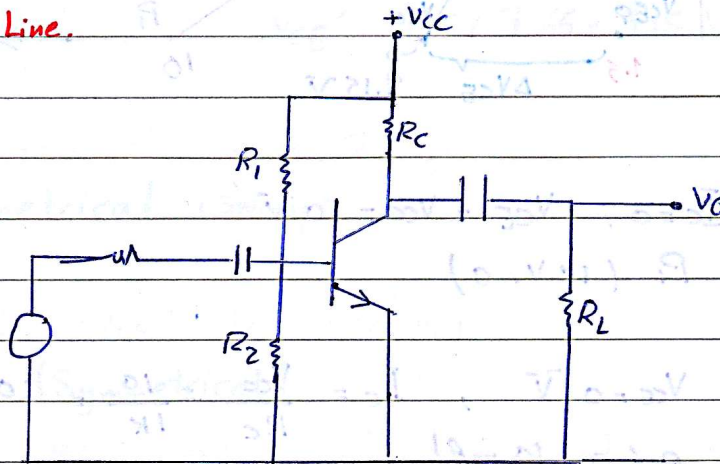 Line.
+ Vcc
R1
Rc
Vo
R2
RL